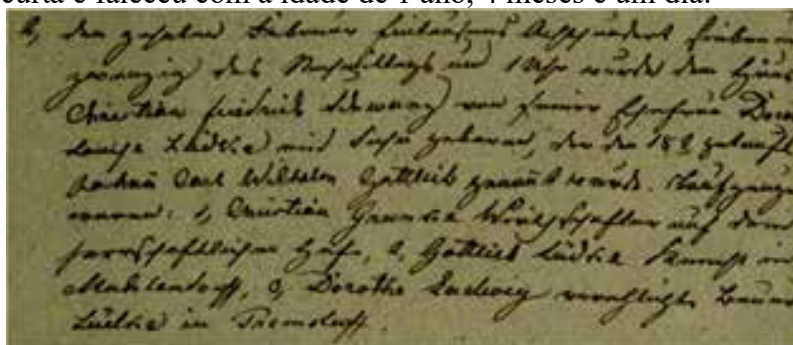 curta e faleceu com a idade de 1 ano, 4 meses e um dia.
den zehnten Februar Eintausend Achthundert sieben
zwanzig des Nachmittags um 1 Uhr wurde dem
Christian Friedrich von seiner Ehefrau
Louise Lüdke ein Sohn geboren, der den 18t getauft
Carl Wilhelm Gottlieb genannt wurde. Taufzeugen
waren: 1, Christian auf dem
herrschaftlichen Hofe, 2, Gottlieb Lüdke Knecht in
3, Dorothe Ludwig verehligte Bauer
Lüdke in